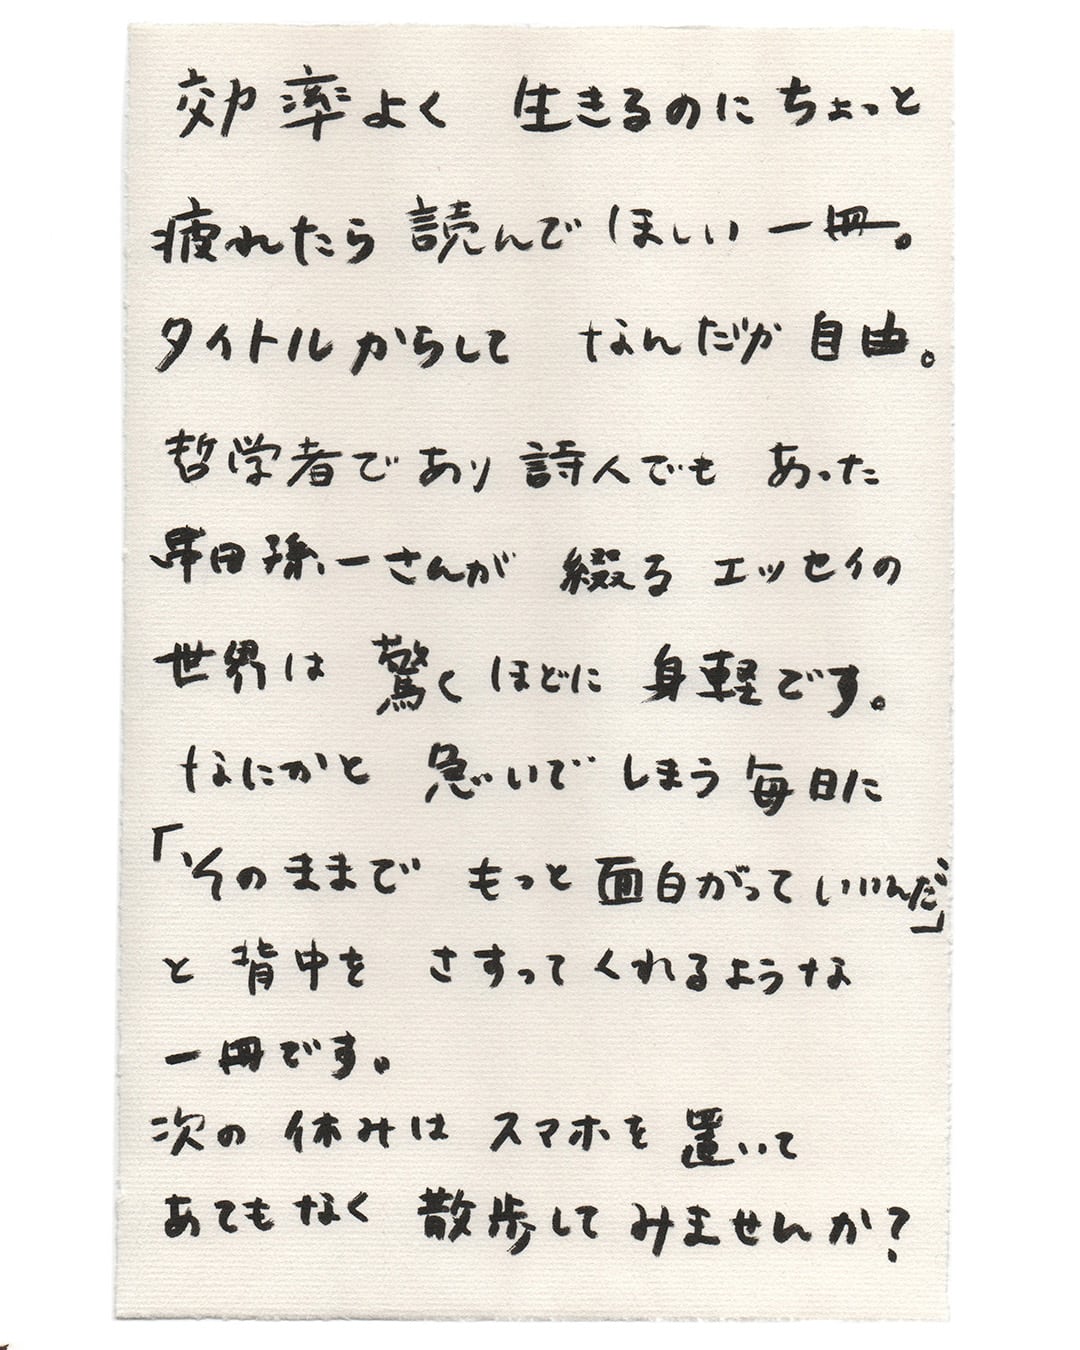 効率よく 生きるのにちょっと
疲れたら 読んで ほしい 一冊。
タイトルからして なんだか 自由。
哲学者であり 詩人でも あった
串田孫一さんが 綴る エッセイの
世界は 驚く ほどに 身軽です。
なにかと 急いで しまう 毎日に
「そのままで もっと 面白がって いいんだ」
と 背中を さすって くれるような
一冊です。
次の 休みは スマホを 置いて
あてもなく 散歩して みませんか?